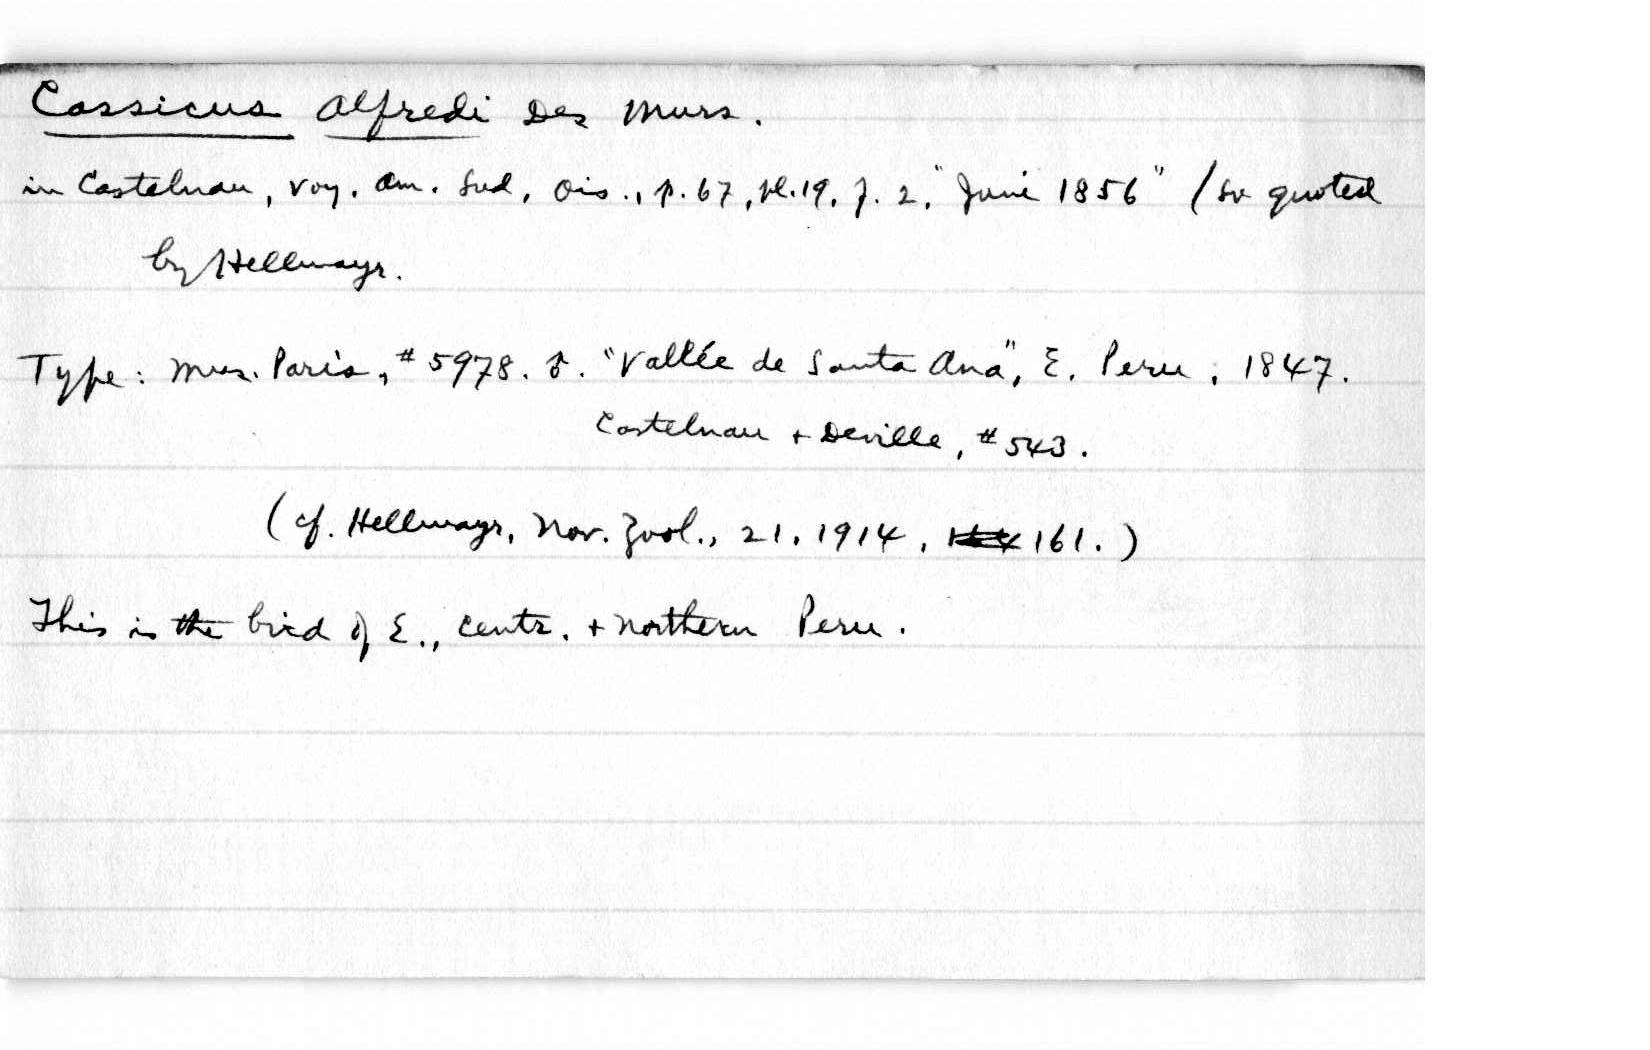 Cassicus Alfredi Des Murs.
in Castelnau, Voy. Am. Sud, Ois., p. 67, pl. 19, f. 2, "June 1856" (so quoted
by Hellmayr.
Type: Mus. Paris, #5978. ♂. "Vallée de Santa Ana", E. Peru, 1847.
Castelnau + Deville, #543.
(cf. Hellmayr, Nov. Zool., 21, 1914, 161.)
This is the bird of E., centr. + northern Peru.